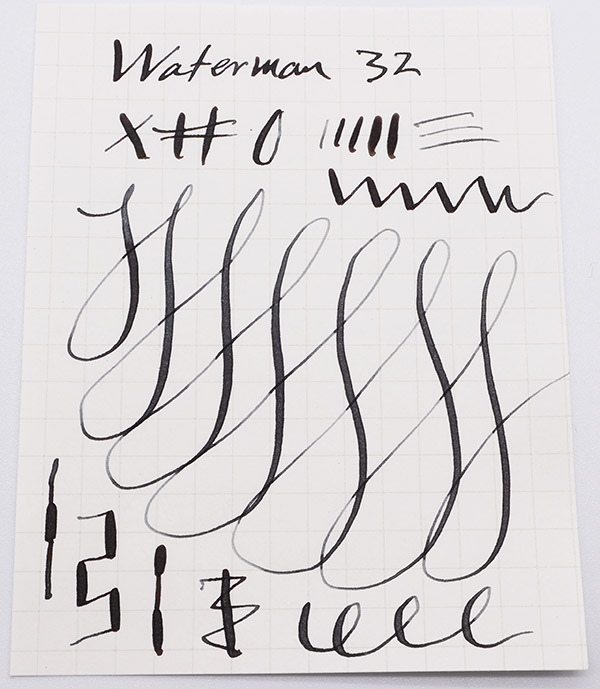 Waterman 32
X # 0